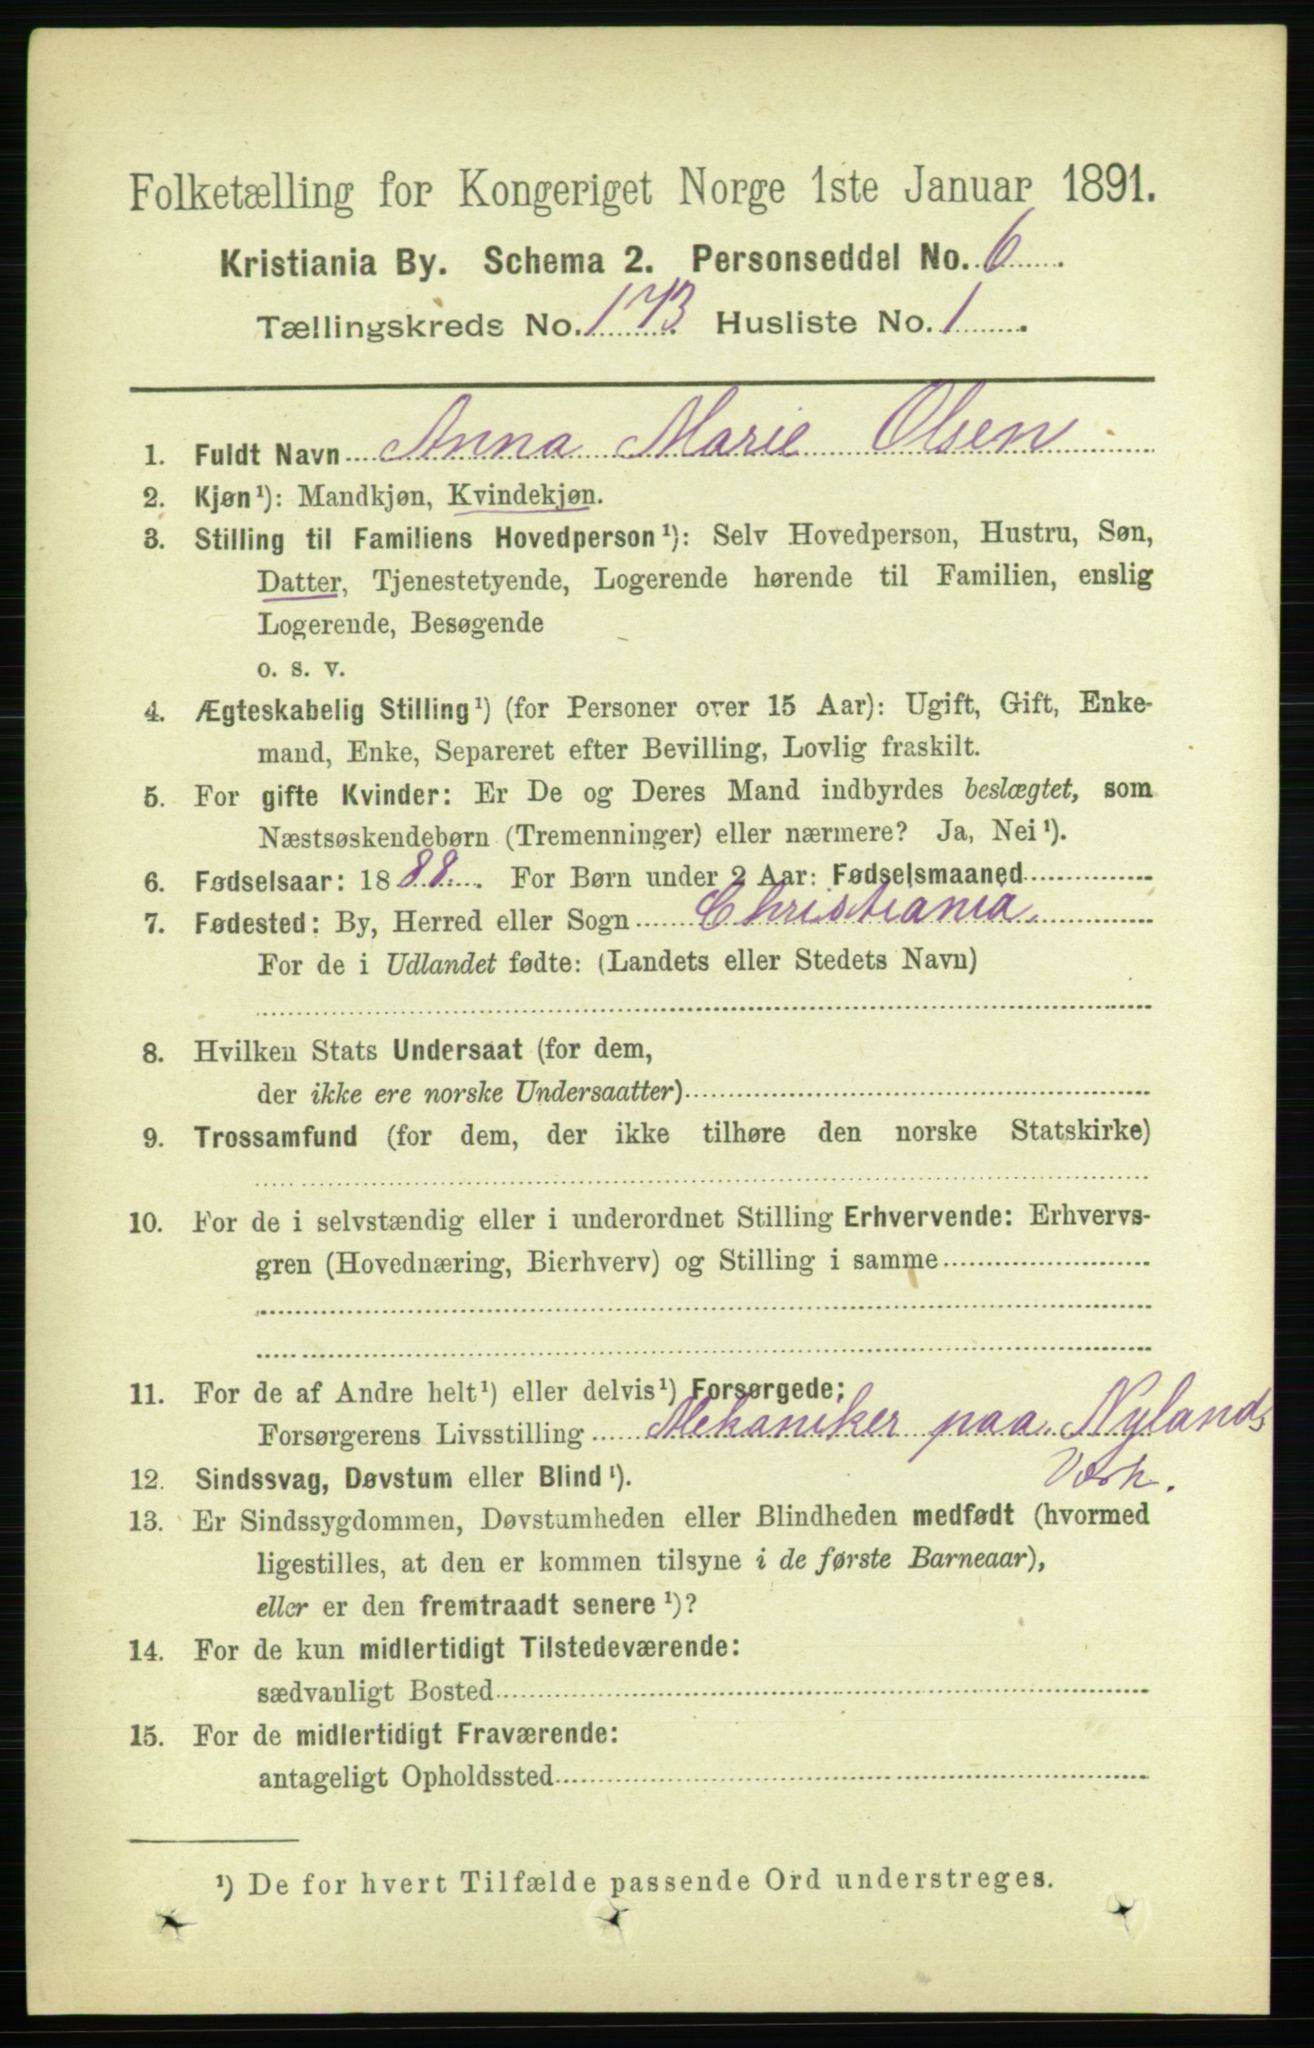 Folketælling for Kongeriget Norge 1ste Januar 1891.
Kristiania By. Schema 2. Personseddel No. 6
Tællingskreds No. 173 Husliste No. 1
1. Fuldt Navn Anna Marie Olsen
2. Kjøn¹): Mandkjøn, Kvindekjøn.
3. Stilling til Familiens Hovedperson¹): Selv Hovedperson, Hustru, Søn,
Datter, Tjenestetyende, Logerende hørende til Familien, enslig
Logerende, Besøgende
o. s. v.
4. Ægteskabelig Stilling¹) (for Personer over 15 Aar): Ugift, Gift, Enke-
mand, Enke, Separeret efter Bevilling, Lovlig fraskilt.
5. For gifte Kvinder: Er De og Deres Mand indbyrdes beslægtet, som
Næstsøskendebørn (Tremenninger) eller nærmere? Ja, Nei¹).
6. Fødselsaar: 1888. For Børn under 2 Aar: Fødselsmaaned
7. Fødested: By, Herred eller Sogn Christiania.
For de i Udlandet fødte: (Landets eller Stedets Navn)
8. Hvilken Stats Undersaat (for dem,
der ikke ere norske Undersaatter)
9. Trossamfund (for dem, der ikke tilhøre den norske Statskirke)
10. For de i selvstændig eller i underordnet Stilling Erhvervende: Erhvervs-
gren (Hovednæring, Bierhverv) og Stilling i samme
11. For de af Andre helt¹) eller delvis¹) Forsørgede;
Forsørgerens Livsstilling Mekaniker paa Nylands
Værk.
12. Sindssvag, Døvstum eller Blind¹).
13. Er Sindssygdommen, Døvstumheden eller Blindheden medfødt (hvormed
ligestilles, at den er kommen tilsyne i de første Barneaar),
eller er den fremtraadt senere¹)?
14. For de kun midlertidigt Tilstedeværende:
sædvanligt Bosted
15. For de midlertidigt Fraværende:
antageligt Opholdssted
¹) De for hvert Tilfælde passende Ord understreges.